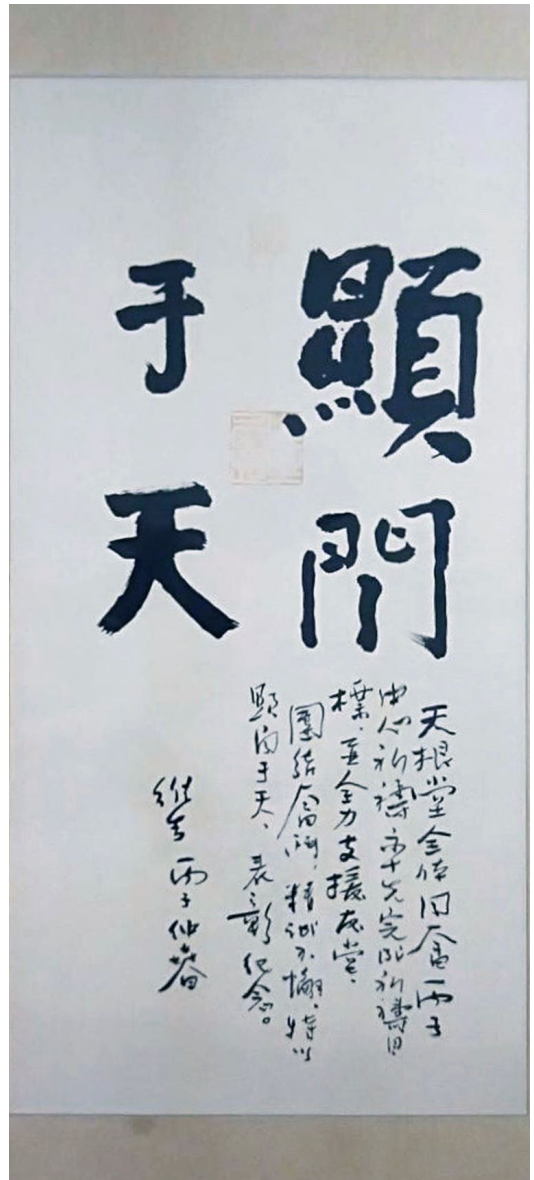 顯聞
于天
天根堂全体同奮丙子
心祈禱率先完成祈禱目
標、並全力支援友堂、
團結奮鬥、精誠不懈、特以
顯聞于天、表彰紀念。
維生 丙子仲春